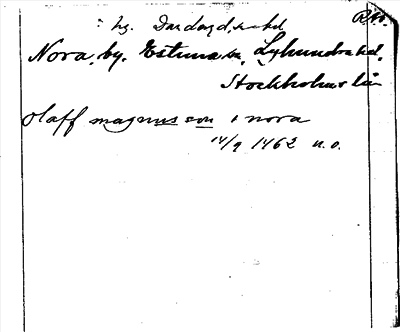 RAÖ.
: hg. Danderyd,
Nora, by. Estuna sn, Lyhundra hd.
Stockholms län
olaff magnusson i nora
14/9 1462 n.o.